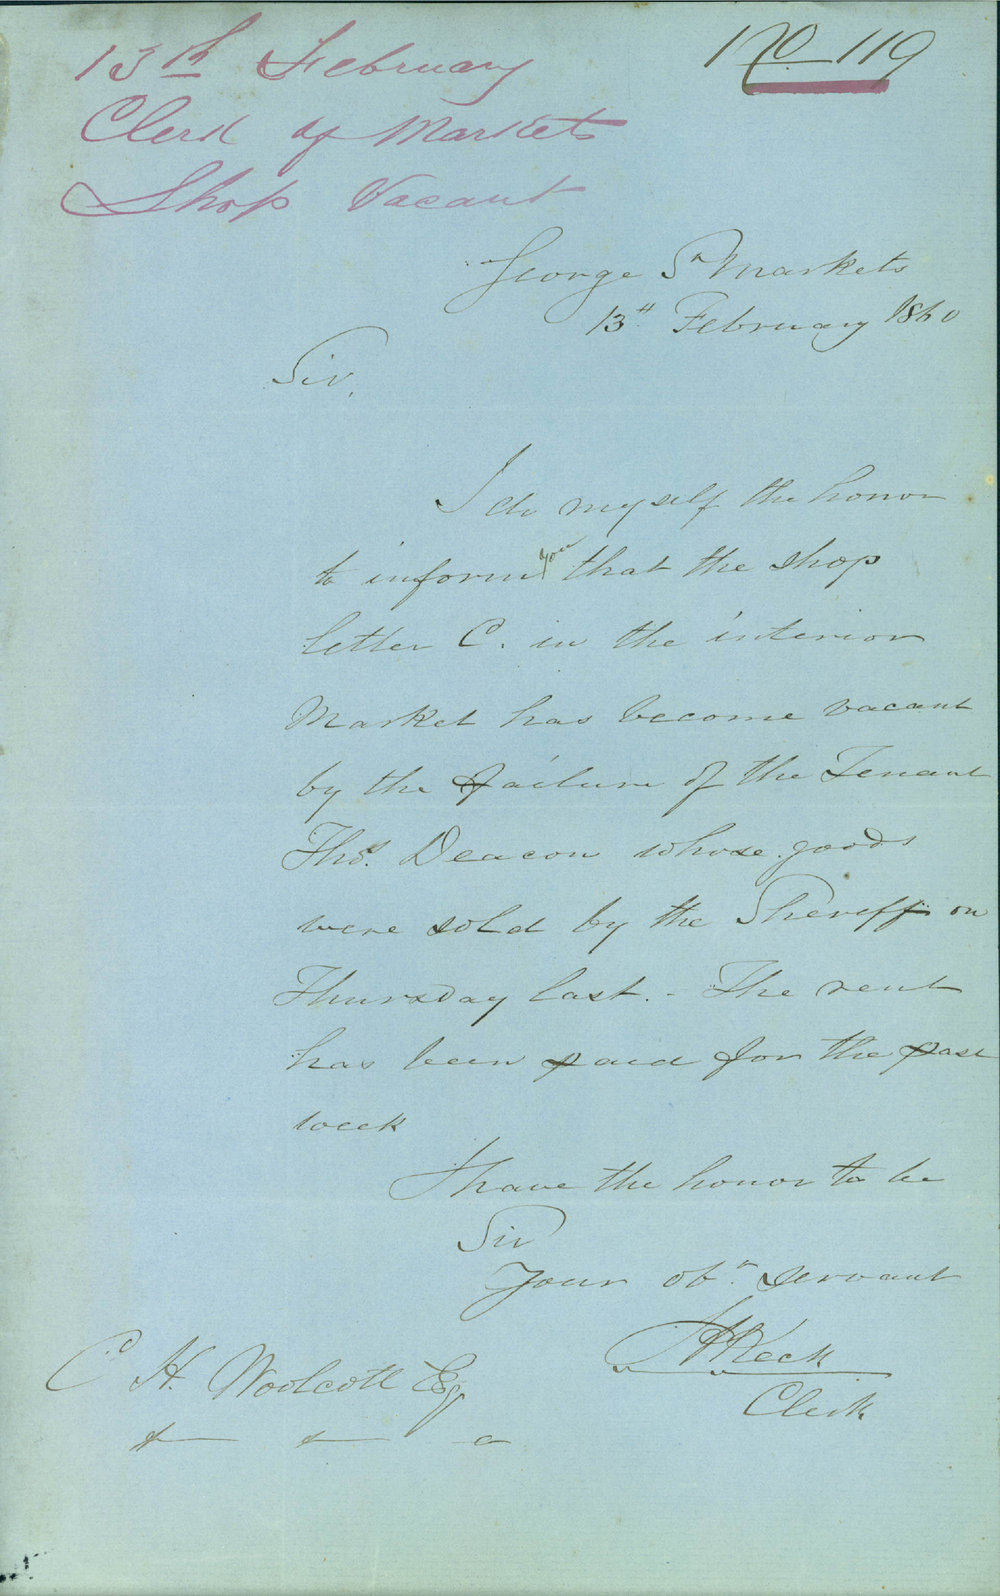 13th February
No 119
Clerk of Markets
Shop Vacant
George St Markets
13th February 1860
Sir,
I do myself the honor
to inform you that the shop
letter C. in the interior
Market has become vacant
by the failure of the Tenant
Thos. Deacon whose goods
were sold by the Sheriff on
Thursday last. - The rent
has been paid for the past
week
I have the honor to be
Sir
Your obt. servant
Keck
Clerk
C H. Woolcott Esq